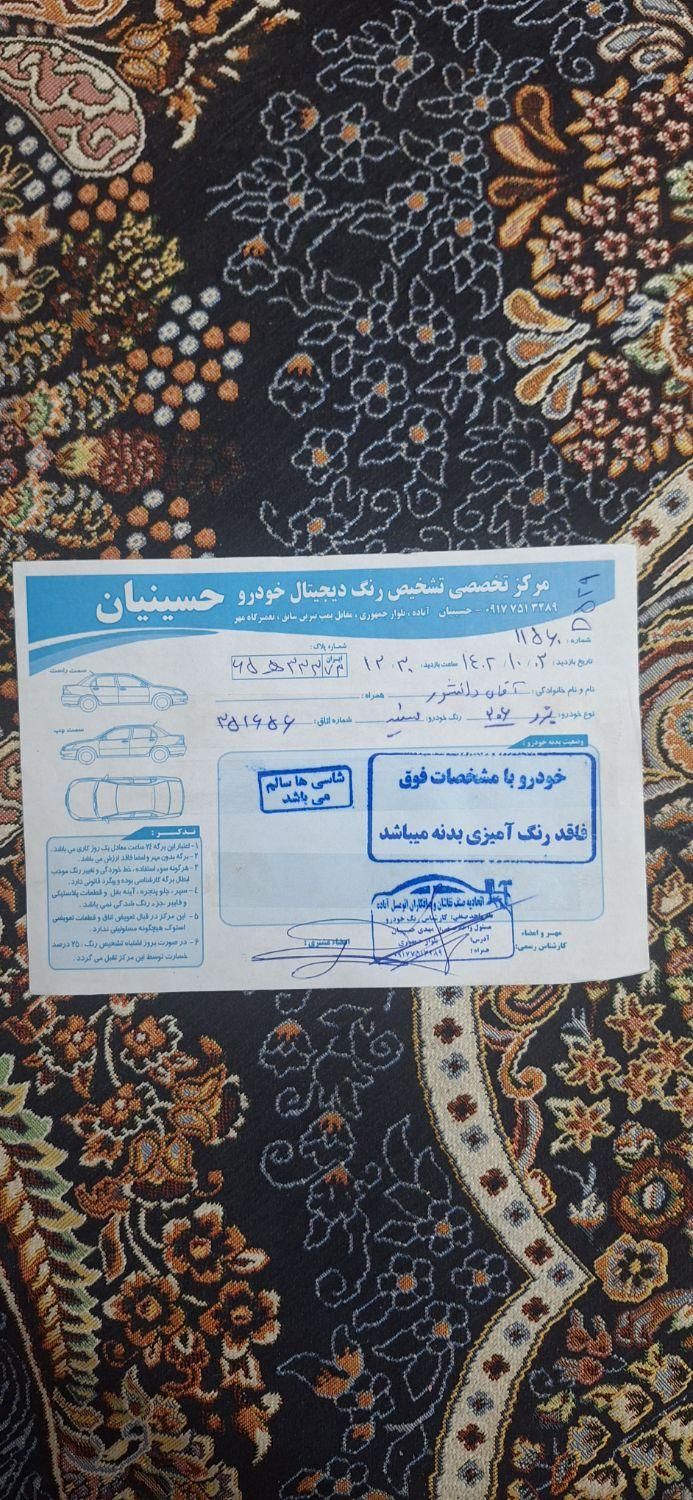 مرکز تخصصی تشخیص رنگ دیجیتال خودرو حسینیان
۰۹۱۷۷۵۱۳۲۸۹ - حسینیان آباده ، بلوار جمهوری ، مقابل پمپ بنزین سابق ، تعمیرگاه مهر
شماره : ۱۱۵۶۰
شماره پلاک:
تاریخ بازدید: ۱۴۰۲/۱۰/۰۳ ساعت بازدید: ۱۲:۳۰
ایران
نام و نام خانوادگی: آقای دانشور همراه :
نوع خودرو: پژو ۲۰۶ رنگ خودرو: سفید شماره اتاق : ۳۵۱۶۵۶
سمت راست
سمت چپ
وضعیت بدنه خودرو :
خودرو با مشخصات فوق
فاقد رنگ آمیزی بدنه میباشد
شاسی ها سالم
می باشد
تذکر :
۱- اعتبار این برگه ۲۴ ساعت معادل یک روز کاری می باشد.
۲- برگه بدون مهر و امضا فاقد ارزش می باشد.
۳- هر گونه سوء استفاده ، خط خوردگی و تغییر رنگ موجب
ابطال برگه کارشناسی بوده و پیگرد قانونی دارد.
۴- سپر ، جلو پنجره ، آینه بغل و قطعات پلاستیکی
و فایبر ،جزء رنگ شدگی نمی باشد.
۵- این مرکز در قبال تعویض اتاق و قطعات تعویضی
استوک هیچگونه مسئولیتی ندارد.
۶- در صورت بروز اشتباه تشخیص رنگ ، ۲۵ درصد
خسارت توسط این مرکز تقبل می گردد.
اتحادیه صنف نقاشان و صافکاران اتومبیل آباده
نام واحد صنفی: کارشناس رنگ خودرو
مسئول واحد صنفی: مهدی حسینیان
آدرس: بلوار جمهوری
همراه: ۰۹۱۷۷۵۱۳۲۸۹
مهر و امضاء
کارشناس رسمی:
امضاء مشتری :